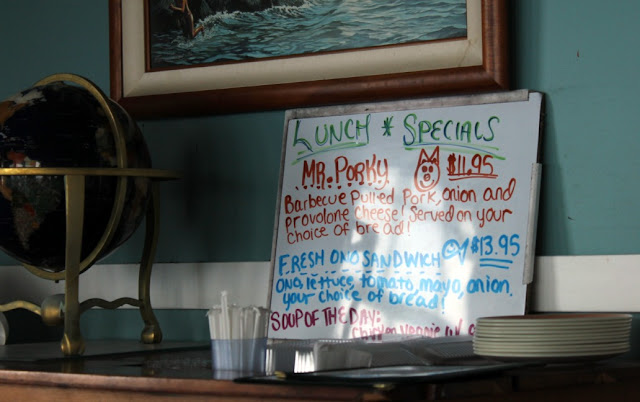 LUNCH * SPECIALS
MR. PORKY $11.95
Barbecue Pulled Pork, onion and
provolone cheese! Served on your
choice of bread!
FRESH ONO SANDWICH $13.95
ONO, lettuce, tomato, mayo, onion.
your choice of bread!
SOUP OF THE DAY:
veggie